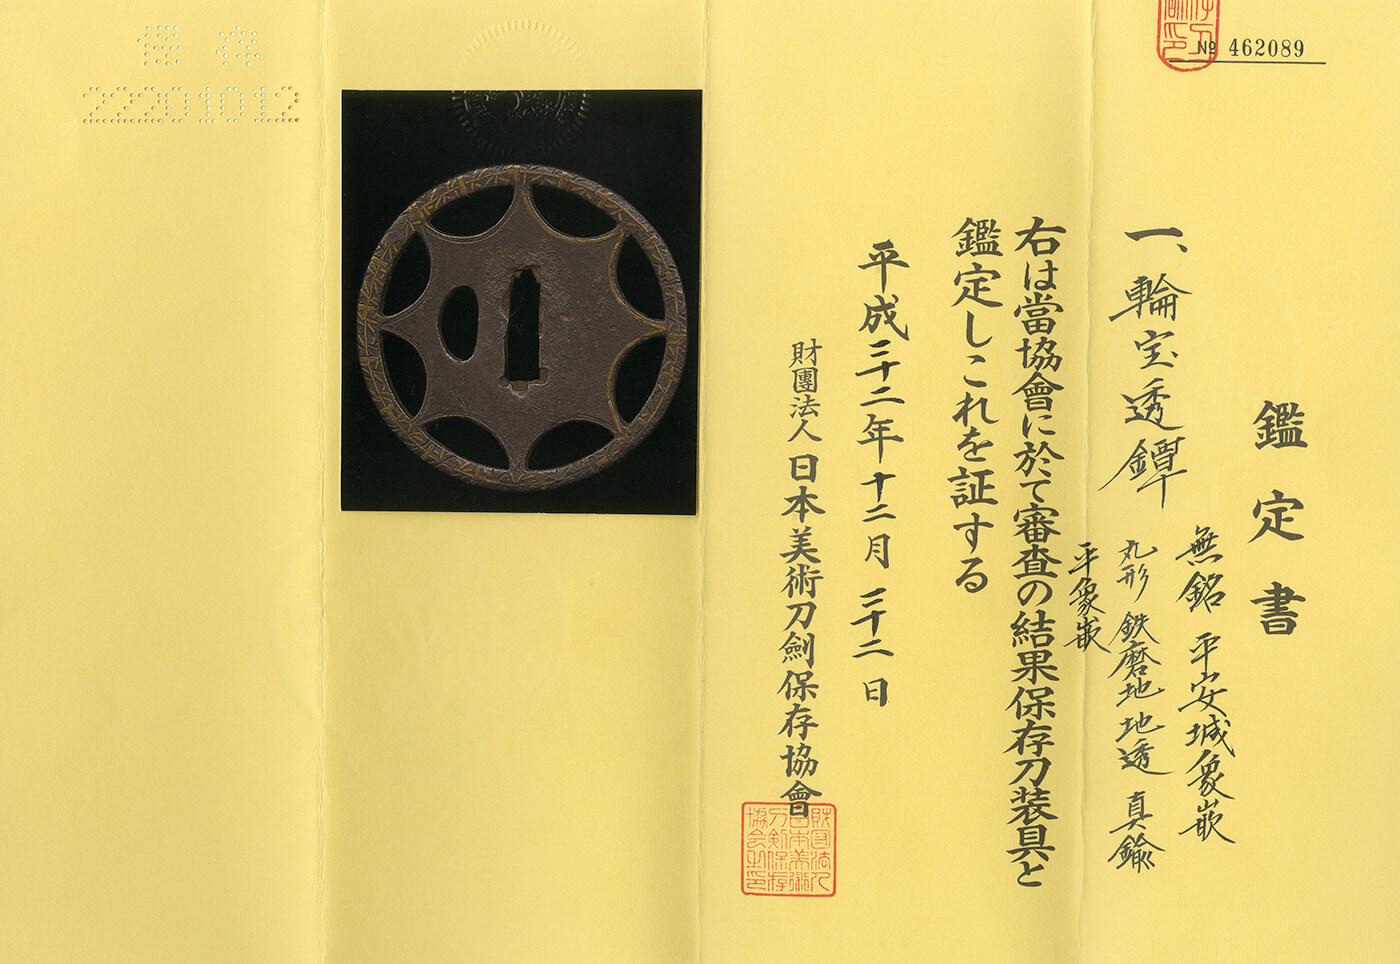 № 462089
鑑定書
一、輪宝透鐔
無銘 平安城象嵌
丸形 鉄磨地 地透 真鍮
平象嵌
右は當協會に於て審査の結果保存刀装具と
鑑定しこれを証する
平成二十二年十二月二十二日
財團法人日本美術刀劍保存協會
財団法人
日本美術
刀剣保存
協会之印
保存
22201012